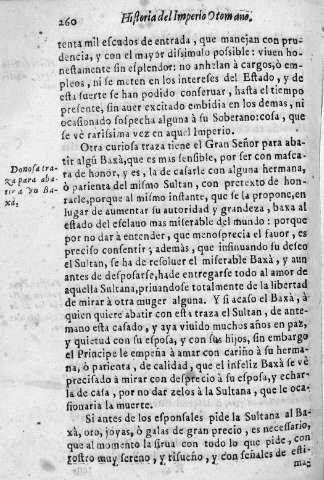 260
Historia del Imperio Otomano.
tenta mil escudos de entrada, que manejan con pru-
dencia, y con el mayor dissimulo possible: viuen ho-
nestamente sin esplendor: no anhelan à cargos, ò em-
pleos, ni se meten en los intereses del Estado, y de
esta suerte se han podido conseruar, hasta el tiempo
presente, sin auer excitado embidia en los demas, ni
ocasionado sospecha alguna à su Soberano: cosa, que
se vè rarissima vez en aquel Imperio.
Otra curiosa traza tiene el Gran Señor para aba-
tir algũ Baxà, que es mas sensible, por ser con masca-
ra de honor, y es, la de casarle con alguna hermana,
ò parienta del mismo Sultan, con pretexto de hon-
rarle, porque al mismo instante, que se la propone, en
lugar de aumentar su autoridad y grandeza, baxa al
estado del esclauo mas miserable del mundo: porque
por no dar à entender, que menosprecia el fauor, es
preciso consentir; ademàs, que insinuando su deseo
el Sultan, se ha de resoluer el miserable Baxà, y aun
antes de desposarse, hade entregarse todo al amor de
aquella Sultana, priuandose totalmente de la libertad
de mirar à otra muger alguna. Y si acaso el Baxà, à
quien quiere abatir con esta traza el Sultan, de ante-
mano esta casado, y aya viuido muchos años en paz,
y quietud con su esposa, y con sus hijos, sin embargo
el Principe le empeña à amar con cariño à su herma-
na, ò parienta, de calidad, que el infeliz Baxà se vè
precisado à mirar con desprecio à su esposa, y echar-
la de casa, por no dar zelos à la Sultana, que le oca-
sionaria la muerte.
Si antes de los esponsales pide la Sultana al Ba-
xà, oro, joyas, ò galas de gran precio, es necessario,
que al momento la sirua con todo lo que pide, con
rostro muy sereno, y risueño, y con señales de esti-
ma
Donosa tra-
za para aba-
tir à vn Ba-
xà.